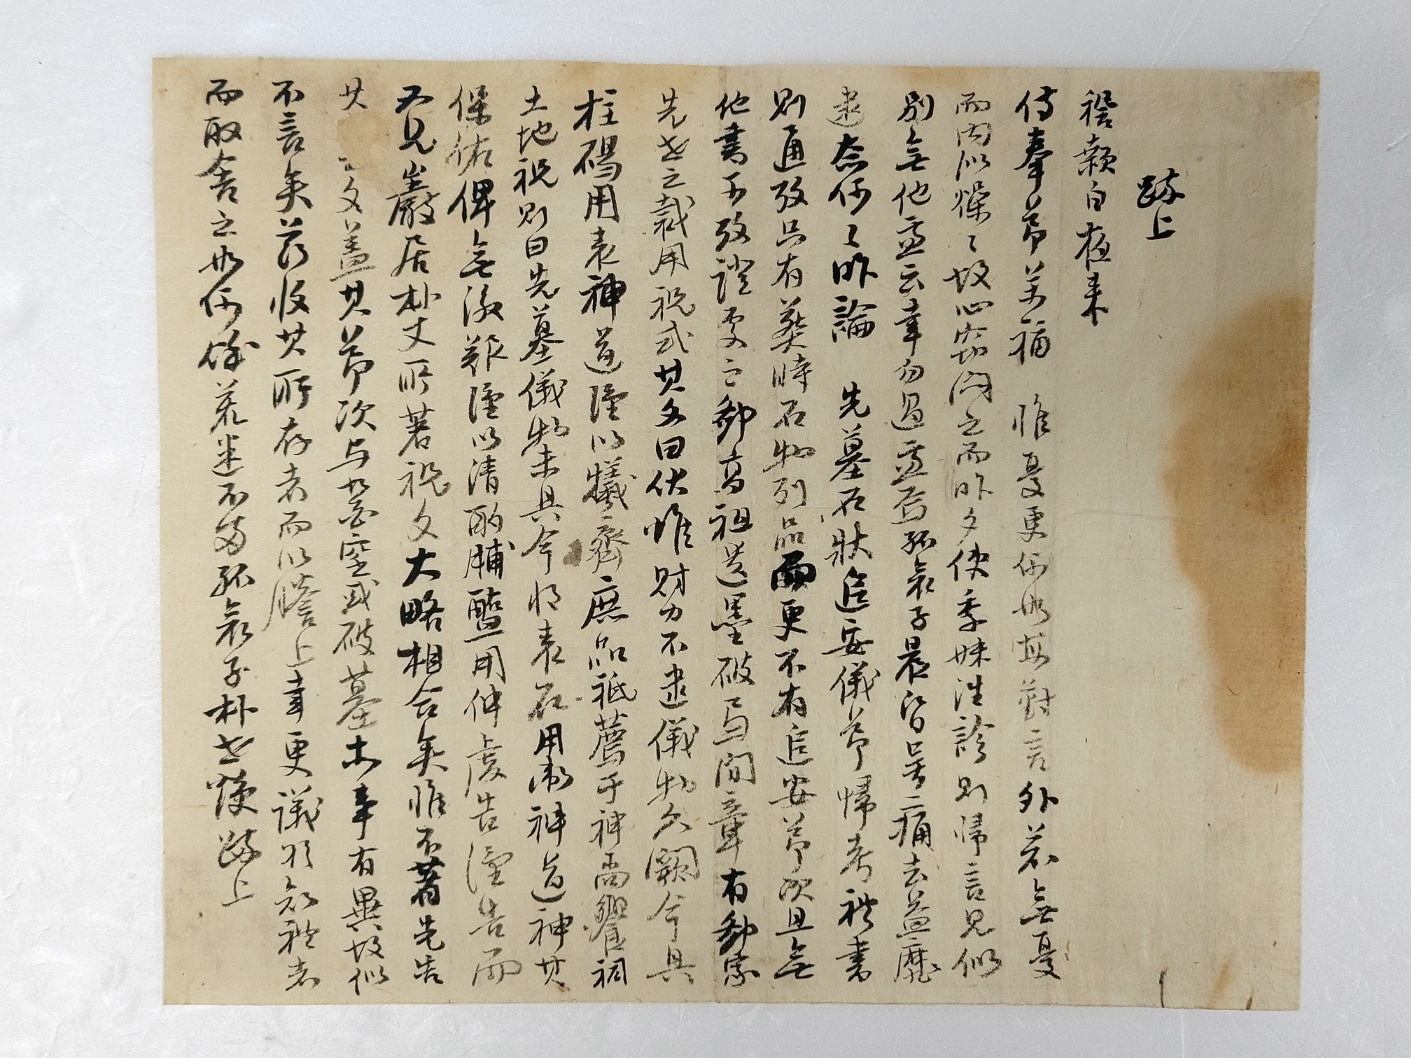 疏上
稽顙白夜來
侍奉節萬福 惟憂更何如每對言外若無憂
而內以燥燥故心竊悶之而昨夕使季妹往診則歸言見似
別無他憂云幸勿過憂焉孤哀子晨昏呼痛去益靡
逮奈何奈何昨論 先墓石牀追安儀節歸考禮書
則通攷只有葬時石物列品而更不有追安節次且無
他書可攷證處之鄙高祖遺墨破局間章有鄙家
先世之裁用祝式其文曰伏惟財力不逮儀物久闕今具
柱碣用表神道謹以犧齊庶品祗薦于神尚饗祠
土地祝則曰先墓儀物未具今將表石用衛神道神其
保佑俾無後艱謹以清酌脯醢用伸虔告謹告而
又見巖居朴丈所著祝文大略相合矣惟不著先告
其 文蓋其節次与營窆或破墓士事有異故似
不言矣茲收其所存者而以謄上幸更議於知禮者
而取舍之如何餘荒迷不備孤哀子朴世 疏上